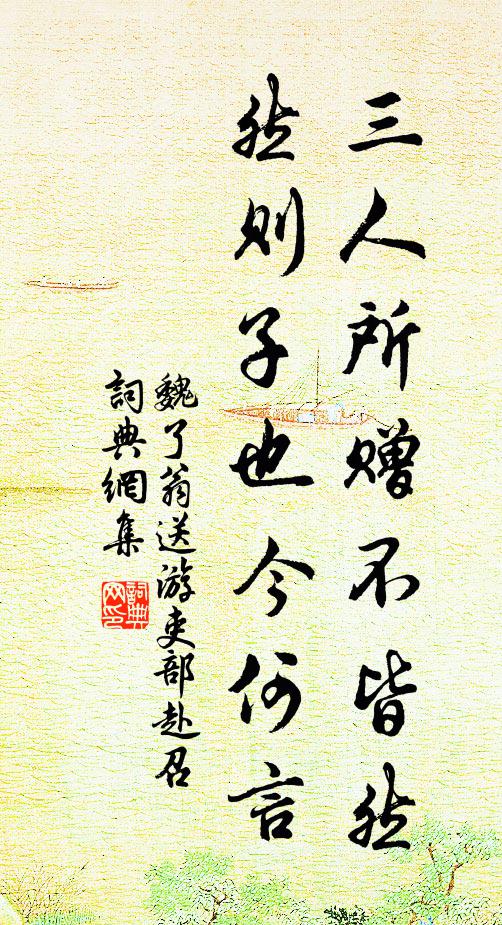 三人所赠不皆然
然则子也今何言
魏了翁送游吏部赴召
詞典網集
詞典
网印